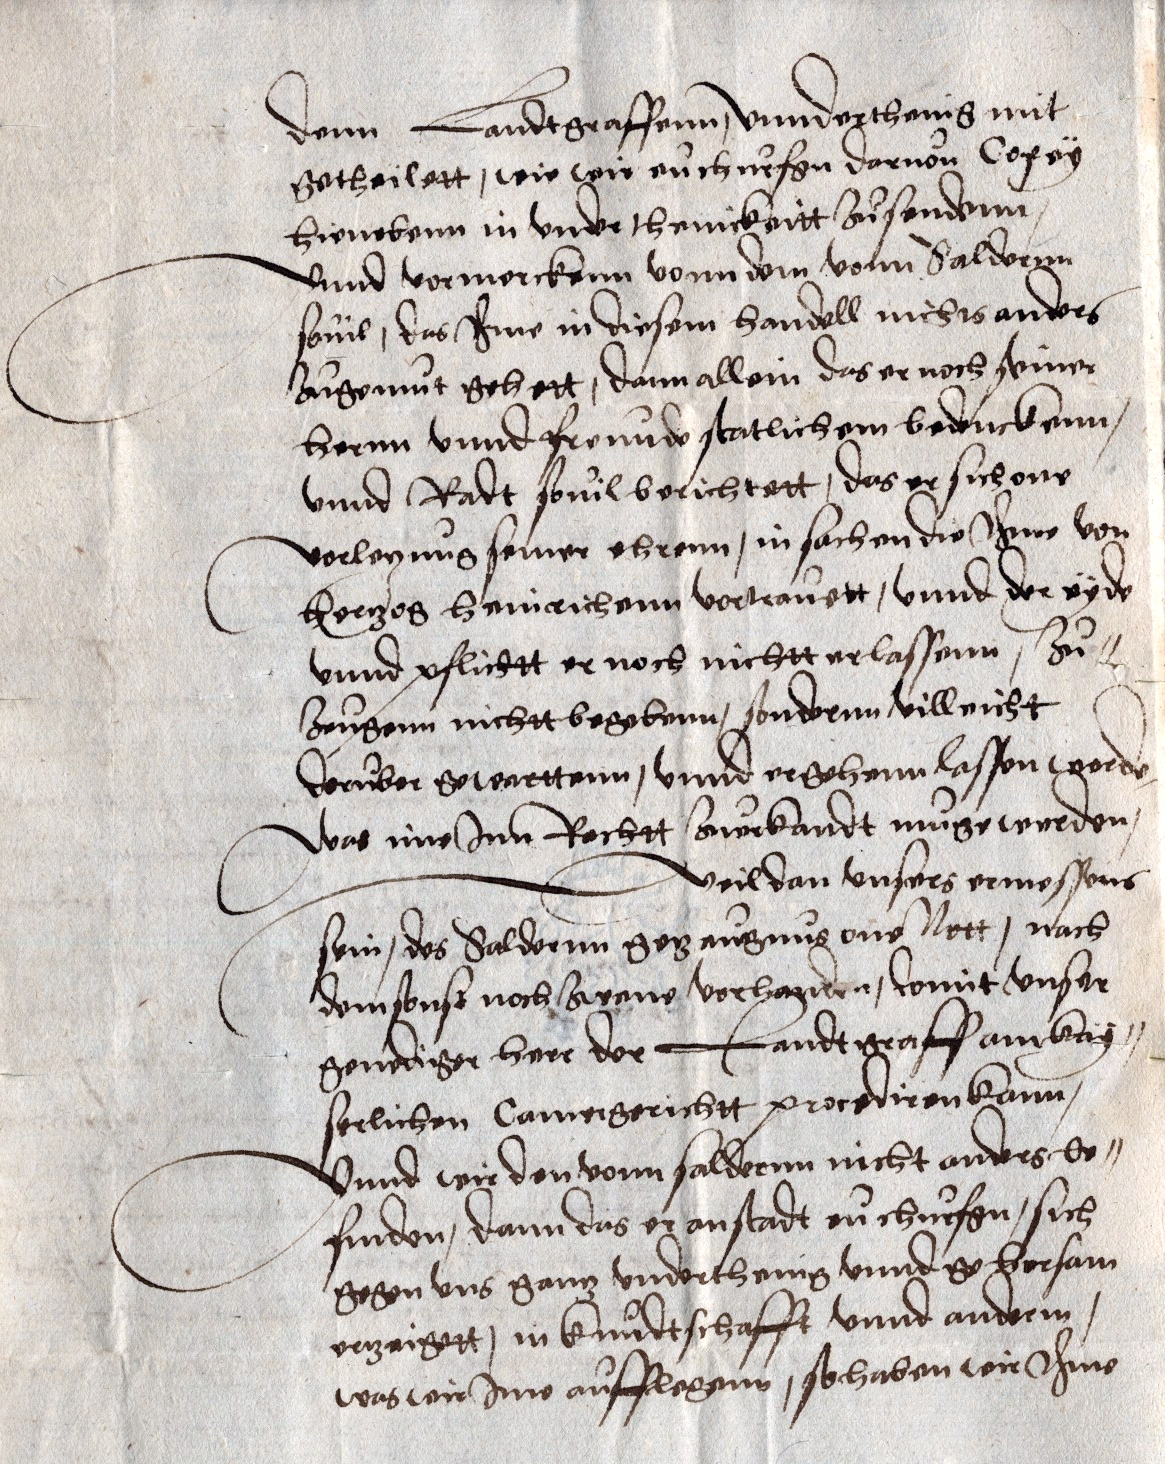 denn Landtgraffenn, vnnderthenig mit
getheilett, wie wir eu churfgn dar von Copeÿ
hienebenn in vnderthenickeitt zusendenn,
Vnnd vormerckenn vonn dem vonn Saldernn
souil, das Ihme in diesem handell nichts anders
zugemut gehett, dann allein das er noch seiner
hernn vnnd freunde statlichem bedenckenn,
vnnd Radt souil berichtett, das er sich one
vorleyzung seiner ehrenn, in sachen die Ihme von
Hertzog Heinrichenn vortrauett, vnnd der eyde
vnnd pflichtt er noch nichtt erlassenn, zu
zeugenn nichtt begebenn, sondernn villeicht
daruber gewarttenn, vnnd ergehenn lassen werde,
was ime Inn Rechtt zuerkandt muge werden,
Weil dan vnsers ermessens
sein, des Saldernn getzeugnus one Nott, nach
dem sonst noch zwene vorhanden, domit vnser
genediger herr der Landtgraff am kay
serlichen Camergerichtt procediren kann,
Vnnd wir den vonn saldernn nicht anders be
finden, dann das er anstadt eu churfgn, sich
gegen vns gantz vnderthenig vnnd gehorsam
ertzeigett, in kundtschafft vnnd anderm,
was wir Ime aufflegenn, so haben wir Ihme